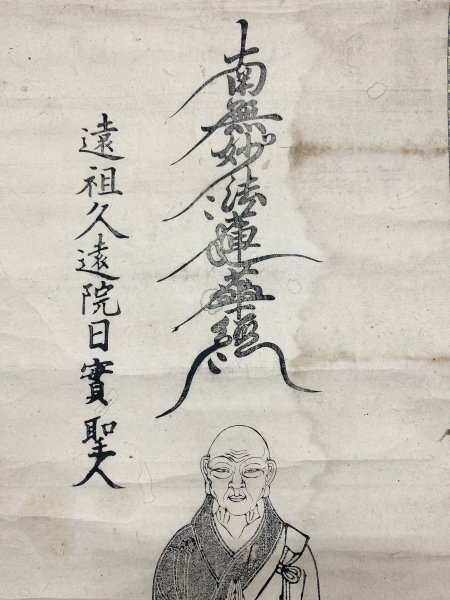 南無妙法蓮華經
遠祖久遠院日實聖人